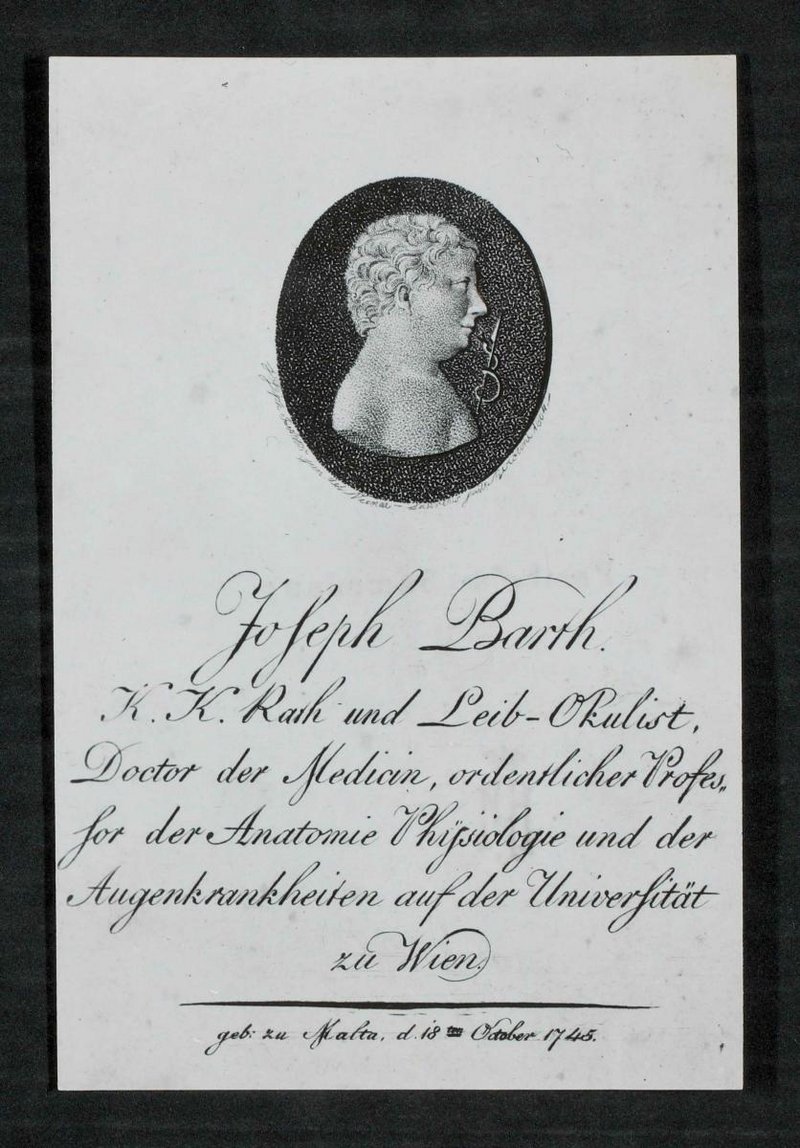 Joseph Barth.
K. K. Rath und Leib-Okulist,
Doctor der Medicin, ordentlicher Profes„
sor der Anatomie Phÿsiologie und der
Augenkrankheiten auf der Universität
zu Wien.
geb: zu Malta, d. 18ten October 1745.